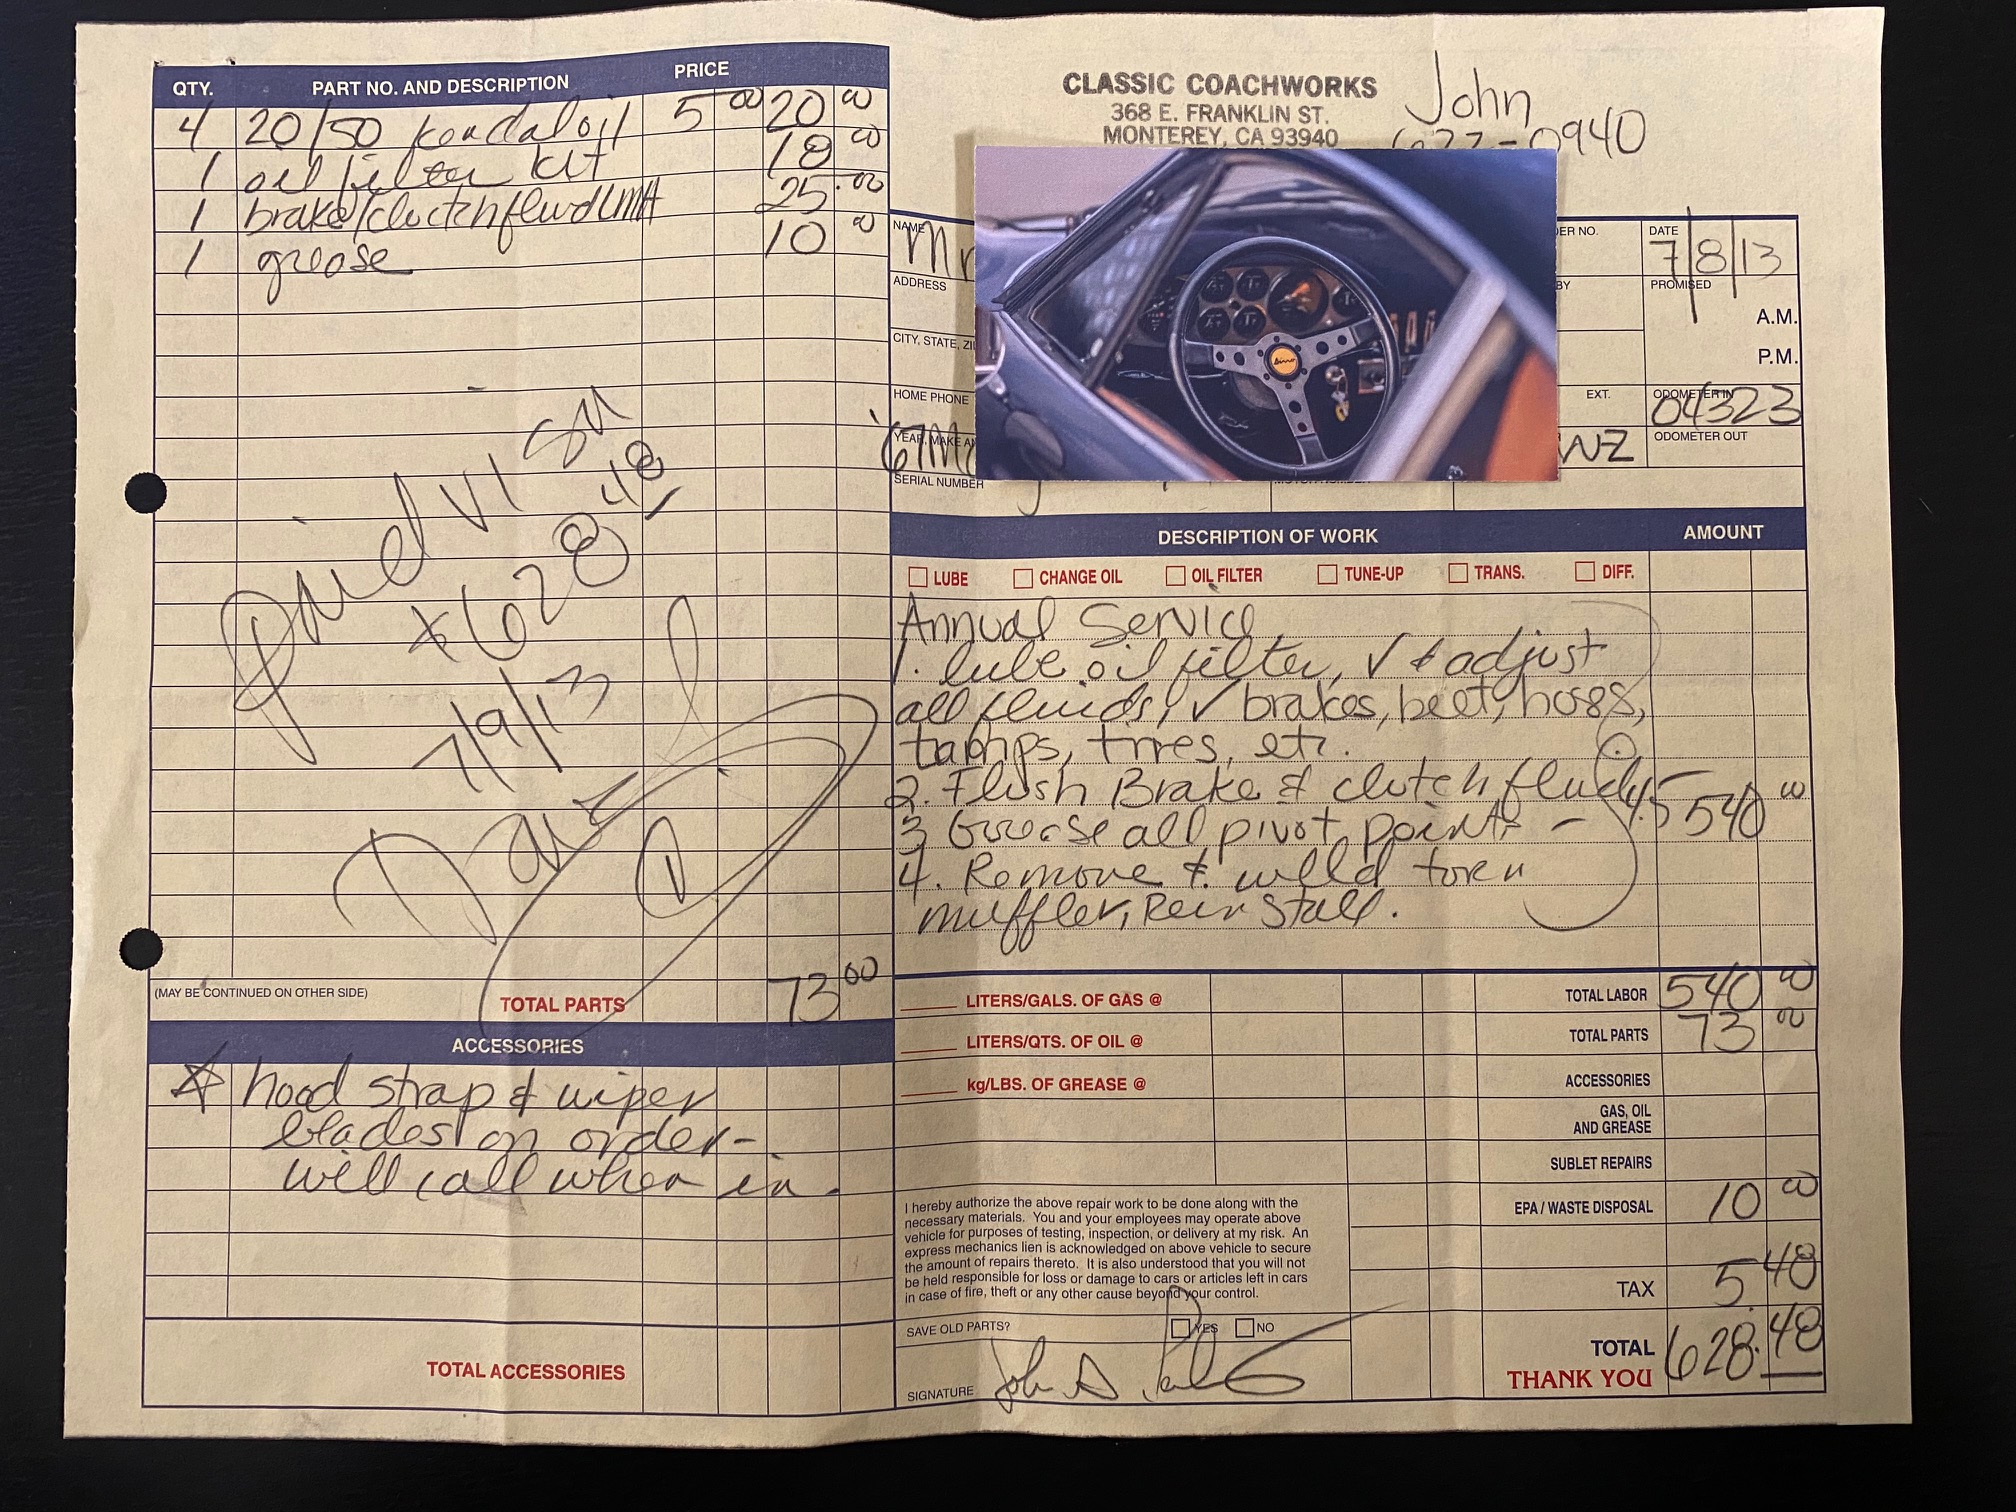 QTY. PART NO. AND DESCRIPTION PRICE
4 20/50 kendal oil 5 00 20 00
1 oil filter kit 18 00
1 brake/clutch fluid 25.00
1 grease 10 00
Paid VISA
628 48
7/9/13
(MAY BE CONTINUED ON OTHER SIDE) TOTAL PARTS 73 00
ACCESSORIES
hood strap & wiper
blades on order-
will call when in.
TOTAL ACCESSORIES
CLASSIC COACHWORKS
368 E. FRANKLIN ST.
MONTEREY, CA 93940
John
0940
NAME Mr
ER NO.
DATE 7/8/13
ADDRESS
BY
PROMISED
A.M.
P.M.
CITY, STATE,
HOME PHONE
EXT.
ODOMETER IN 04323
YEAR, MAKE '67
NZ
ODOMETER OUT
SERIAL NUMBER
Dino
DESCRIPTION OF WORK AMOUNT
LUBE CHANGE OIL OIL FILTER TUNE-UP TRANS. DIFF.
Annual Service
1. lube oil filter, ✓ & adjust
all fluids, ✓ brakes, belt, hoses,
tires, etc.
2. Flush Brake & clutch fluid 4.5 540 00
3 Grease all pivot points -
4. Remove & weld torn
muffler, Reinstall.
LITERS/GALS. OF GAS @ TOTAL LABOR 540 00
LITERS/QTS. OF OIL @ TOTAL PARTS 73 00
kg/LBS. OF GREASE @ ACCESSORIES
GAS, OIL
AND GREASE
SUBLET REPAIRS
EPA / WASTE DISPOSAL 10 00
TAX 5.48
TOTAL 628.48
THANK YOU
I hereby authorize the above repair work to be done along with the
necessary materials. You and your employees may operate above
vehicle for purposes of testing, inspection, or delivery at my risk. An
express mechanics lien is acknowledged on above vehicle to secure
the amount of repairs thereto. It is also understood that you will not
be held responsible for loss or damage to cars or articles left in cars
in case of fire, theft or any other cause beyond your control.
SAVE OLD PARTS? YES NO
SIGNATURE John